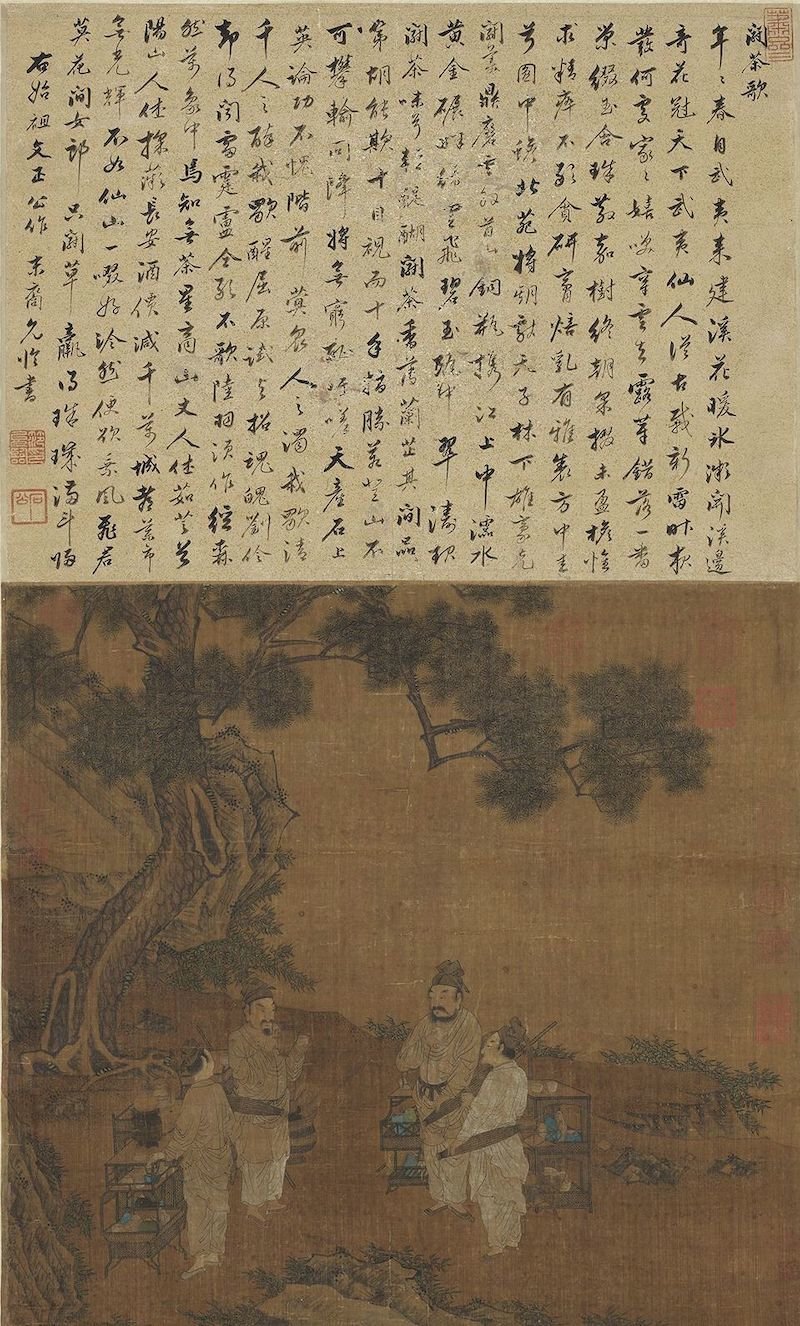 鬪茶歌
年〻春自武夷來建溪花暖冰漸開溪邊
奇花冠天下武夷仙人從古栽新雷昨夜
發何處家〻嬉笑穿雲去露芽錯落一番
榮綴玉含珠散嘉樹終朝采掇未盈襜惟
求精粹不敢貪研膏焙乳有雅製方中圭
兮圓中蟾北苑將期獻天子林下雄豪先
鬪美鼎磨雲外首山銅瓶攜江上中濡水
黃金碾畔綠塵飛碧玉甌中翠濤起
鬪茶味兮輕醍醐鬪茶香薄蘭芷其間品
第胡能欺十目視而十手指勝若登山不
可攀輸同降將無窮恥吁嗟天產石上
英論功不愧階前蓂衆人之濁我歌清
千人之醉我歌醒屈原試與招魂魄劉伶
却得聞雷霆盧仝敢不歌陸羽須作經森
然萬象中焉知無茶星商山丈人休茹芝首
陽山人休採薇長安酒價減千萬城都藥市
無光輝不如仙山一啜好泠然便欲乘風飛君
莫花間女郎只鬪草贏得珠璣滿斗歸
右始祖文正公作 末裔允臨書